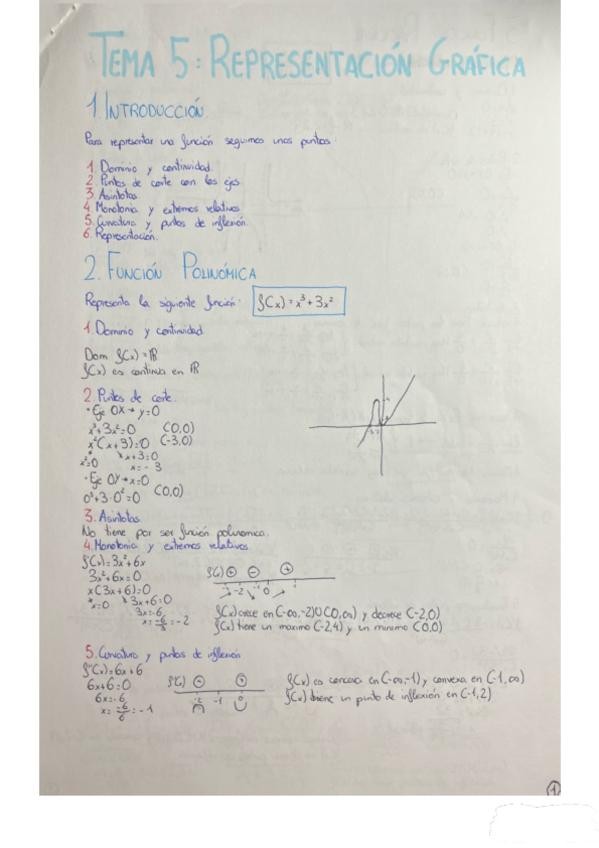 TEMA 5: REPRESENTACIÓN GRÁFICA
1. INTRODUCCIÓN
Para representar una función seguimos unos puntos:
1. Dominio y continuidad.
2. Puntos de corte con los ejes.
3. Asíntotas.
4. Monotonía y extremos relativos.
5. Curvatura y puntos de inflexión.
6. Representación.
2. FUNCIÓN POLINÓMICA
Representa la siguiente función: f(x) = x³ + 3x²
1. Dominio y continuidad
Dom f(x) = ℝ
f(x) es continua en ℝ
2. Puntos de corte.
· Eje OX → y=0
x³+3x²=0 (0,0)
x²(x+3)=0 (-3,0)
x²=0 x+3=0
x=-3
· Eje OY → x=0
0³+3·0²=0 (0,0)
3. Asíntotas.
No tiene por ser función polinómica.
4. Monotonía y extremos relativos.
f'(x)=3x²+6x
3x²+6x=0 f'(x) + - +
x(3x+6)=0 -2 0
x=0 3x+6=0
3x=-6
x=-6/3=-2
f(x) crece en (-∞,-2)U(0,∞) y decrece (-2,0)
f(x) tiene un máximo (-2,4) y un mínimo (0,0)
5. Curvatura y puntos de inflexión
f''(x)=6x+6
6x+6=0 - +
6x=-6 -2 -1 0
x=-6/6=-1
f(x) es concava en (-∞,-1) y convexa en (-1,∞)
f(x) tiene un punto de inflexión en (-1,2)
1